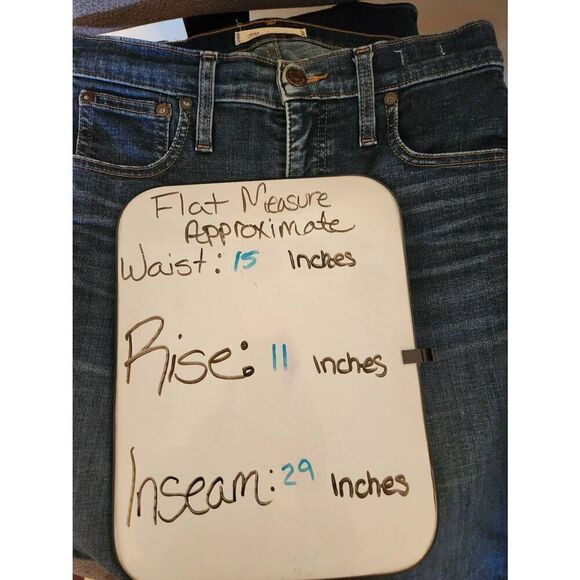 Flat Measure
Approximate
Waist: 15 Inches
Rise: 11 Inches
Inseam: 29 Inches